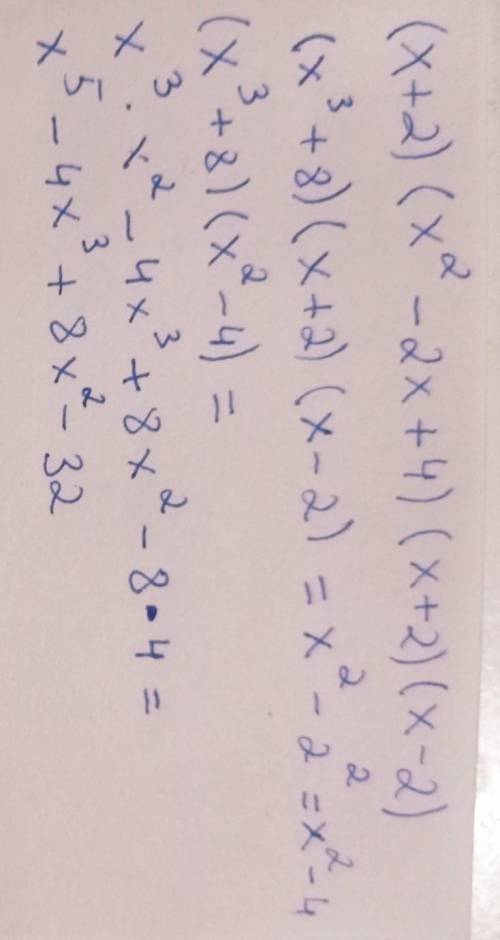 (x+2)(x² - 2x + 4)(x+2)(x-2)
(x³ + 8)(x+2)(x-2) = x² - 2² = x² - 4
(x³ + 8)(x² - 4) =
x³ · x² - 4x³ + 8x² - 8 · 4 =
x⁵ - 4x³ + 8x² - 32